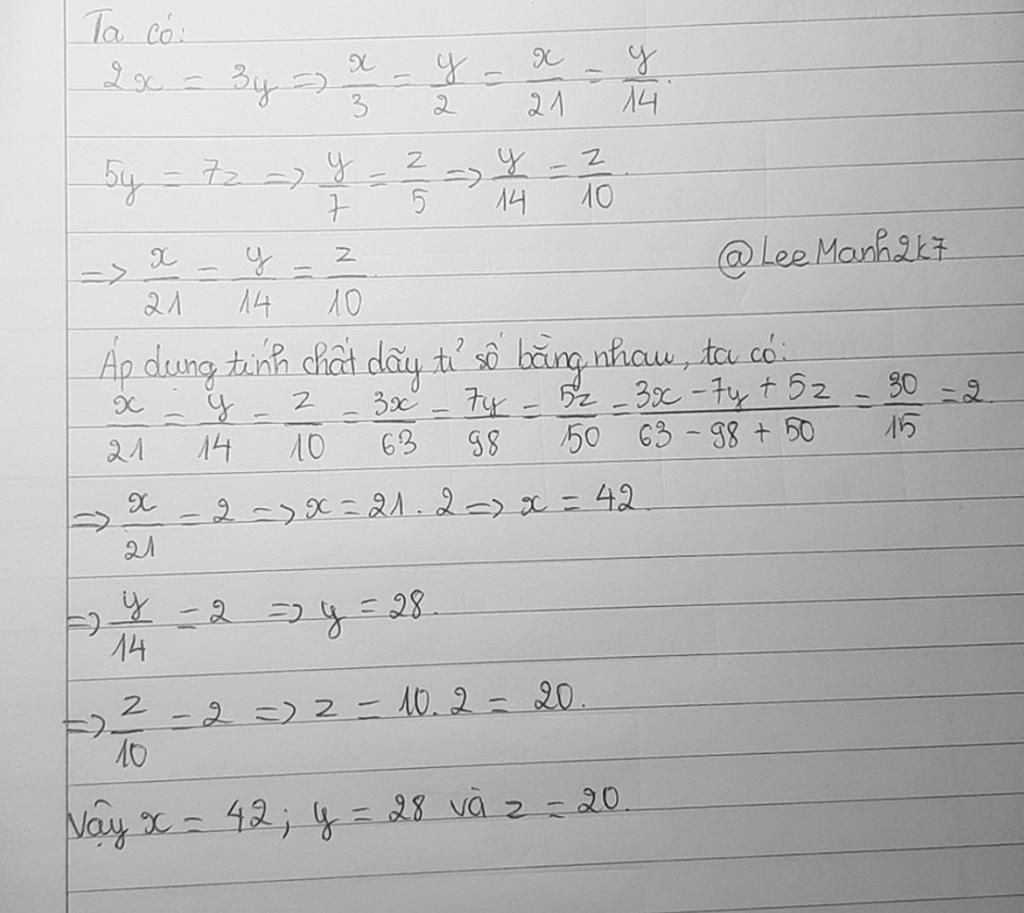 Ta có:
2x = 3y => x/3 = y/2 = x/21 = y/14.
5y = 7z => y/7 = z/5 => y/14 = z/10.
=> x/21 = y/14 = z/10.
@LeeManh2k7
Áp dụng tính chất dãy tỉ số bằng nhau, ta có:
x/21 = y/14 = z/10 = 3x/63 = 7y/98 = 5z/50 = (3x - 7y + 5z)/(63 - 98 + 50) = 30/15 = 2.
=> x/21 = 2 => x = 21.2 => x = 42.
=> y/14 = 2 => y = 28.
=> z/10 = 2 => z = 10.2 = 20.
Vậy x = 42; y = 28 và z = 20.